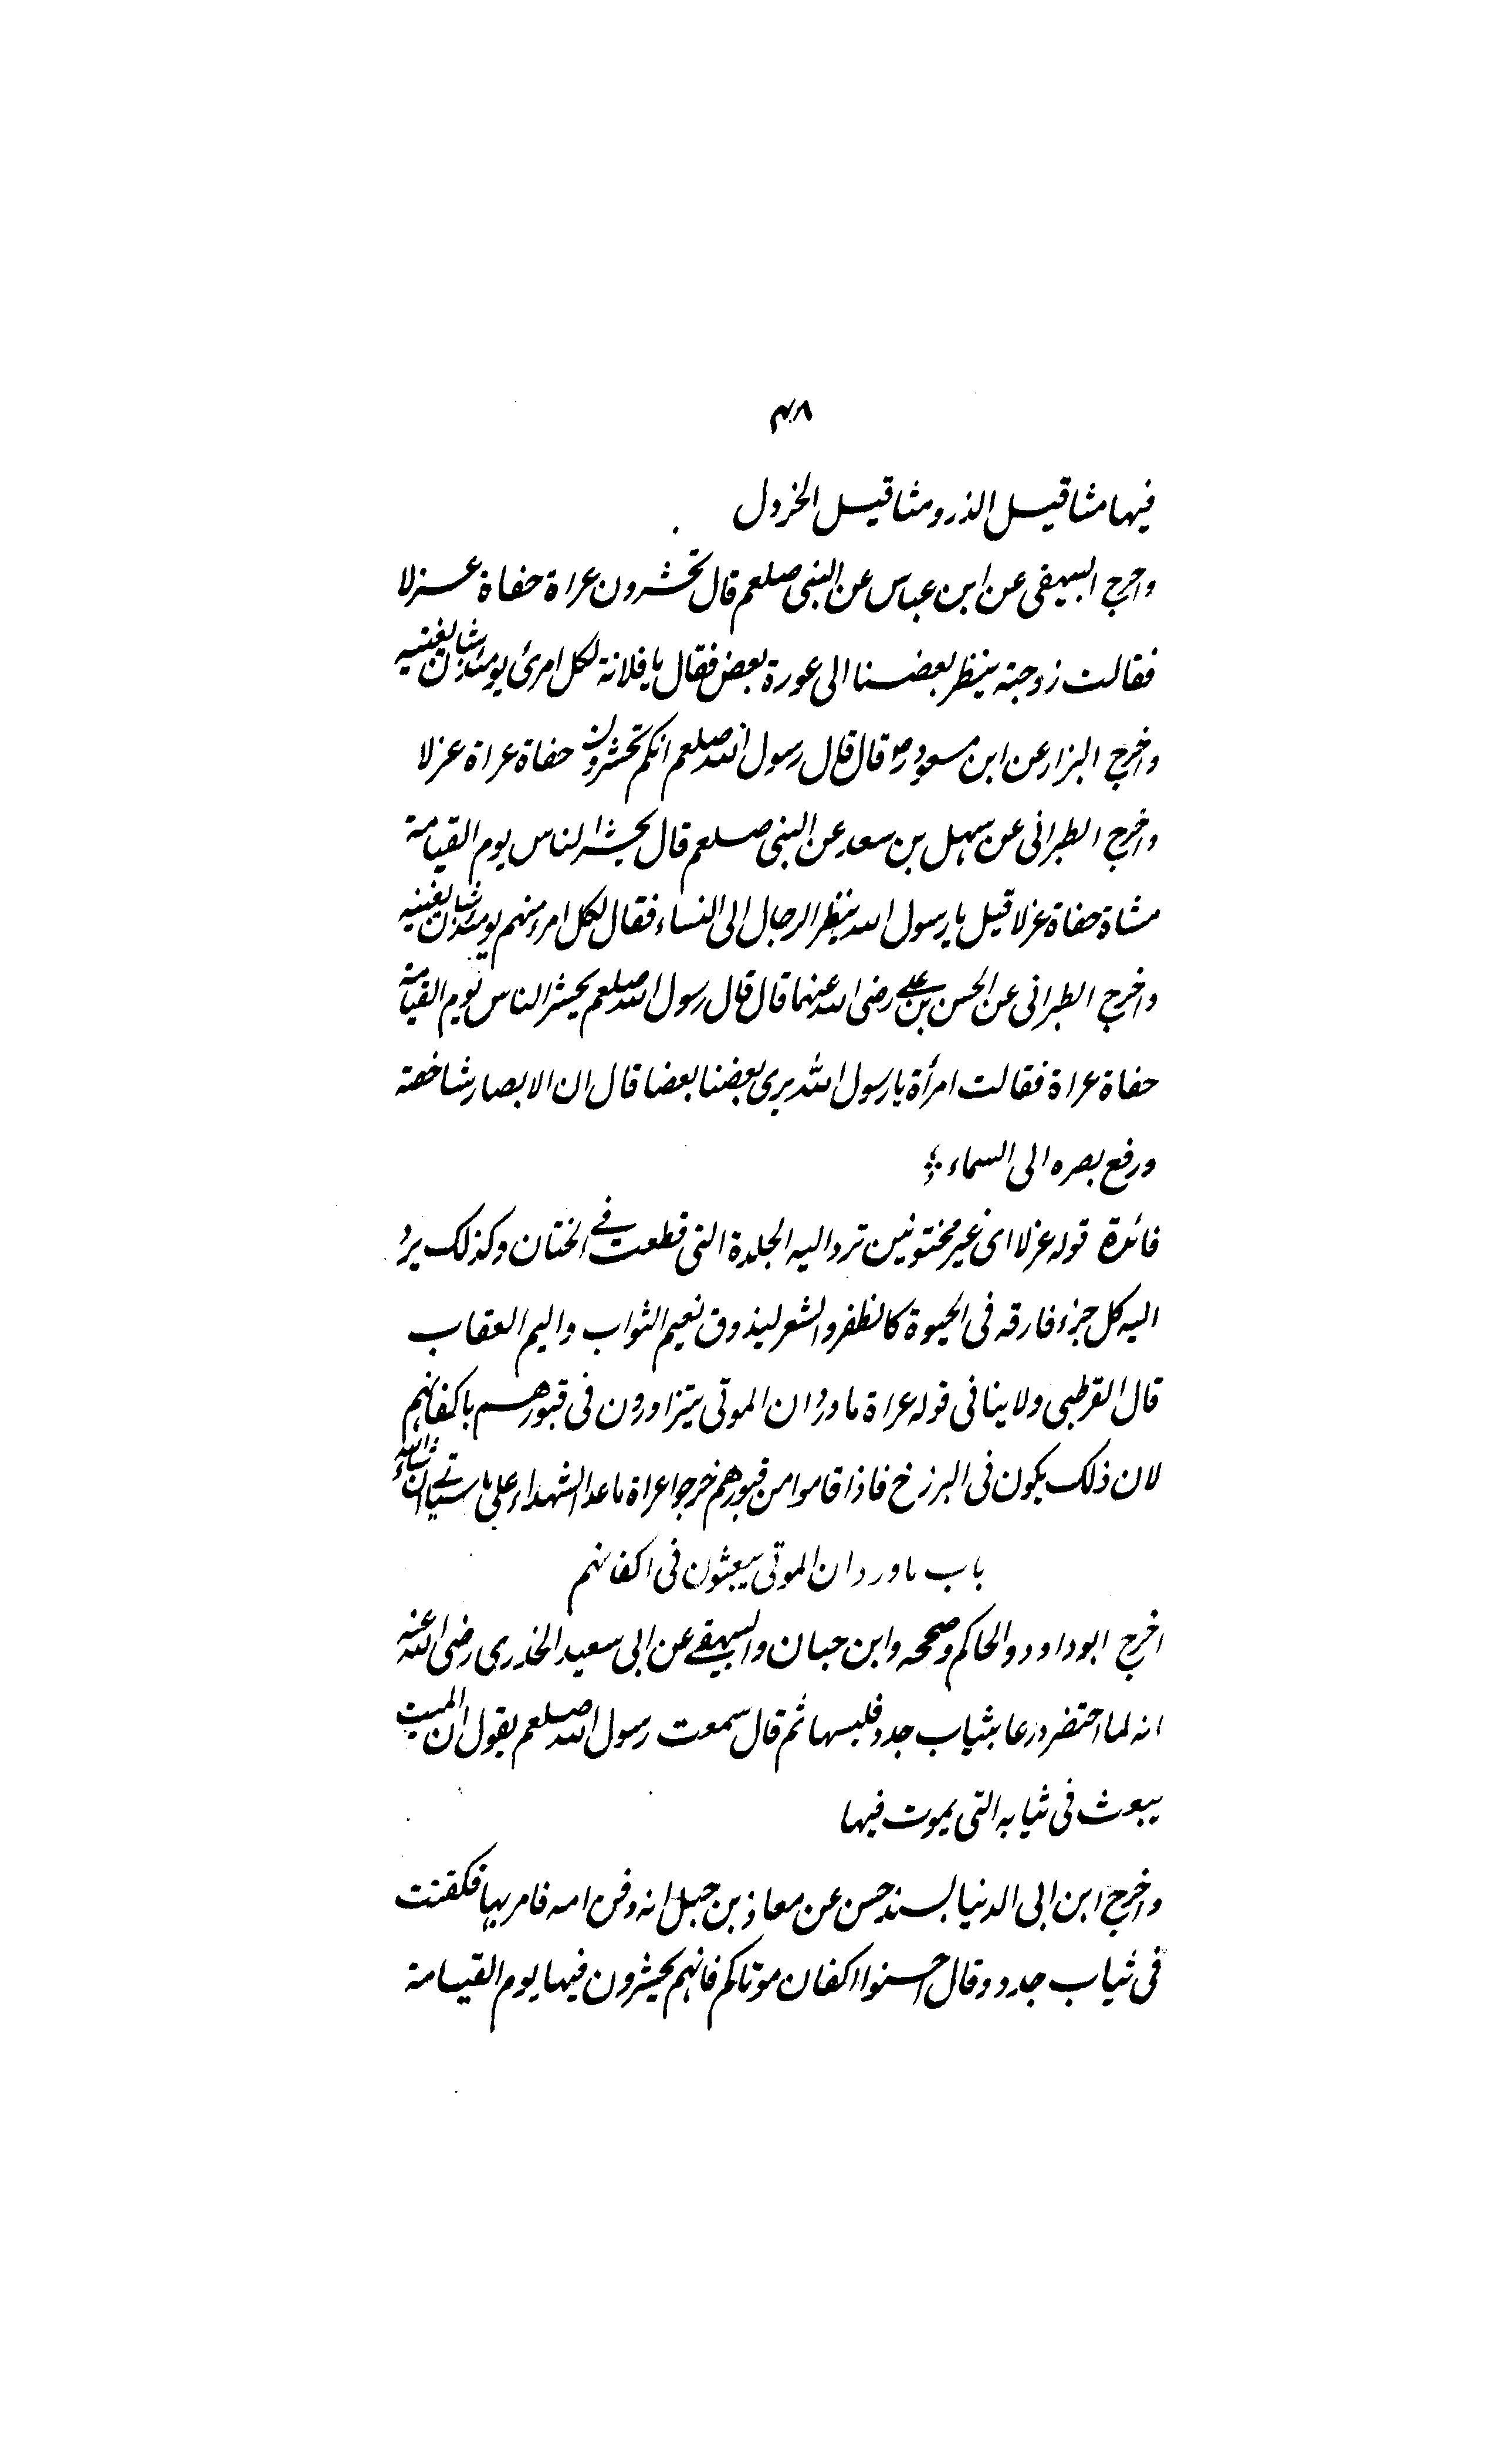 ۴۸
فيها مثاقيل الذر ومثاقيل الخردل
واخرج البيهقى عن ابن عباس عن النبى صلعم قال تحشرون عراة حفاة عزلا
فقالت زوجته ينظر بعضنا الى عورة بعض فقال يا فلانة لكل امرئ يومئذ شان يغنيه
واخرج البزار عن ابن مسعود رض قال قال رسول الله صلعم انكم تحشرون حفاة عراة عزلا
واخرج الطبرانى عن سهل بن سعد عن النبى صلعم قال يحشر الناس يوم القيامة
مشاة حفاة عزلا قيل يا رسول الله ينظر الرجال الى النساء فقال لكل امرء منهم يومئذ شان يغنيه
واخرج الطبرانى عن الحسن بن على رضى الله عنهما قال قال رسول الله صلعم يحشر الناس يوم القيامة
حفاة عراة فقالت امرأة يا رسول الله يرى بعضنا بعضا قال ان الابصار شاخصة
ورفع بصره الى السماء
فائدة قوله عزلا اى غير مختونين ترد اليه الجلدة التى قطعت فى الختان وكذلك يرد
اليه كل جزء فارقه فى الحيوة كالظفر والشعر ليذوق نعيم الثواب واليم العقاب
قال القرطبى ولا ينافى قوله عراة ما ورد ان الموتى يتزاورون فى قبورهم باكفانهم
لان ذلك يكون فى البرزخ فاذا قاموا من قبورهم خرجوا عراة ما عدا الشهداء على ما سياتى ان شاء الله
باب ما ورد ان الموتى يبعثون فى اكفانهم
اخرج ابو داود والحاكم وصححه وابن حبان والبيهقى عن ابى سعيد الخدرى رضى الله عنه
انه لما احتضر دعا بثياب جدد فلبسها ثم قال سمعت رسول الله صلعم يقول ان الميت
يبعث فى ثيابه التى يموت فيها
واخرج ابن ابى الدنيا بسند حسن عن معاذ بن جبل انه دفن امه فامر بها فكفنت
فى ثياب جدد وقال احسنوا اكفان موتاكم فانهم يحشرون فيها يوم القيامة